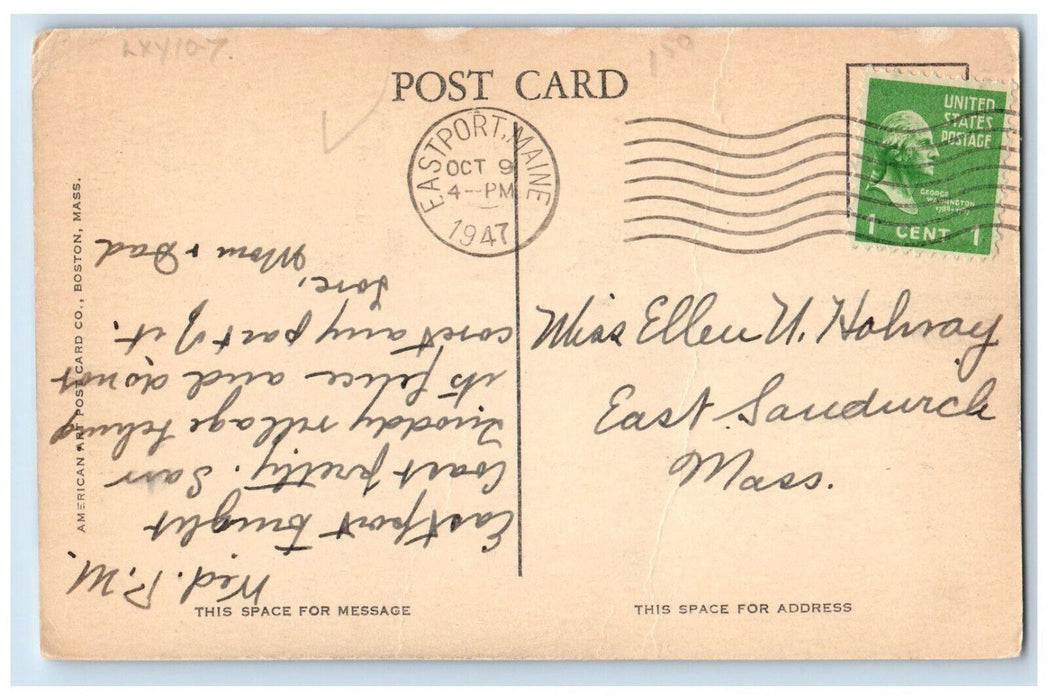 LXY107
150
POST CARD
EASTPORT, MAINE
OCT 9
4-PM
1947
UNITED
STATES
POSTAGE
GEORGE
WASHINGTON
1789-1797
1 CENT 1
AMERICAN ART POST CARD CO., BOSTON, MASS.
Wed. P.M.
Eastport tonight
Coast pretty. Saw
Quoddy village
its fence and do not
covet any part of it.
Love,
Mom & Dad
Miss Ellen N. Holway
East Sandwich
Mass.
THIS SPACE FOR MESSAGE
THIS SPACE FOR ADDRESS